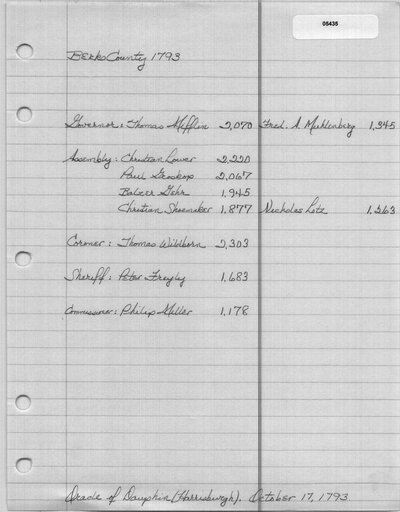 05435
Berks County 1793
Governor: Thomas Mifflin 2,070 Fred. A. Muhlenberg 1,345
Assembly: Christian Lower 2,220
Paul Groskop 2,067
Balzer Gehr 1,945
Christian Shoemaker 1,877 Nicholas Lotz 1,263
Coroner: Thomas Wildbern 2,303
Sheriff: Peter Frayley 1,683
Commissioner: Philip Miller 1,178
Oracle of Dauphin (Harrisburgh). October 17, 1793